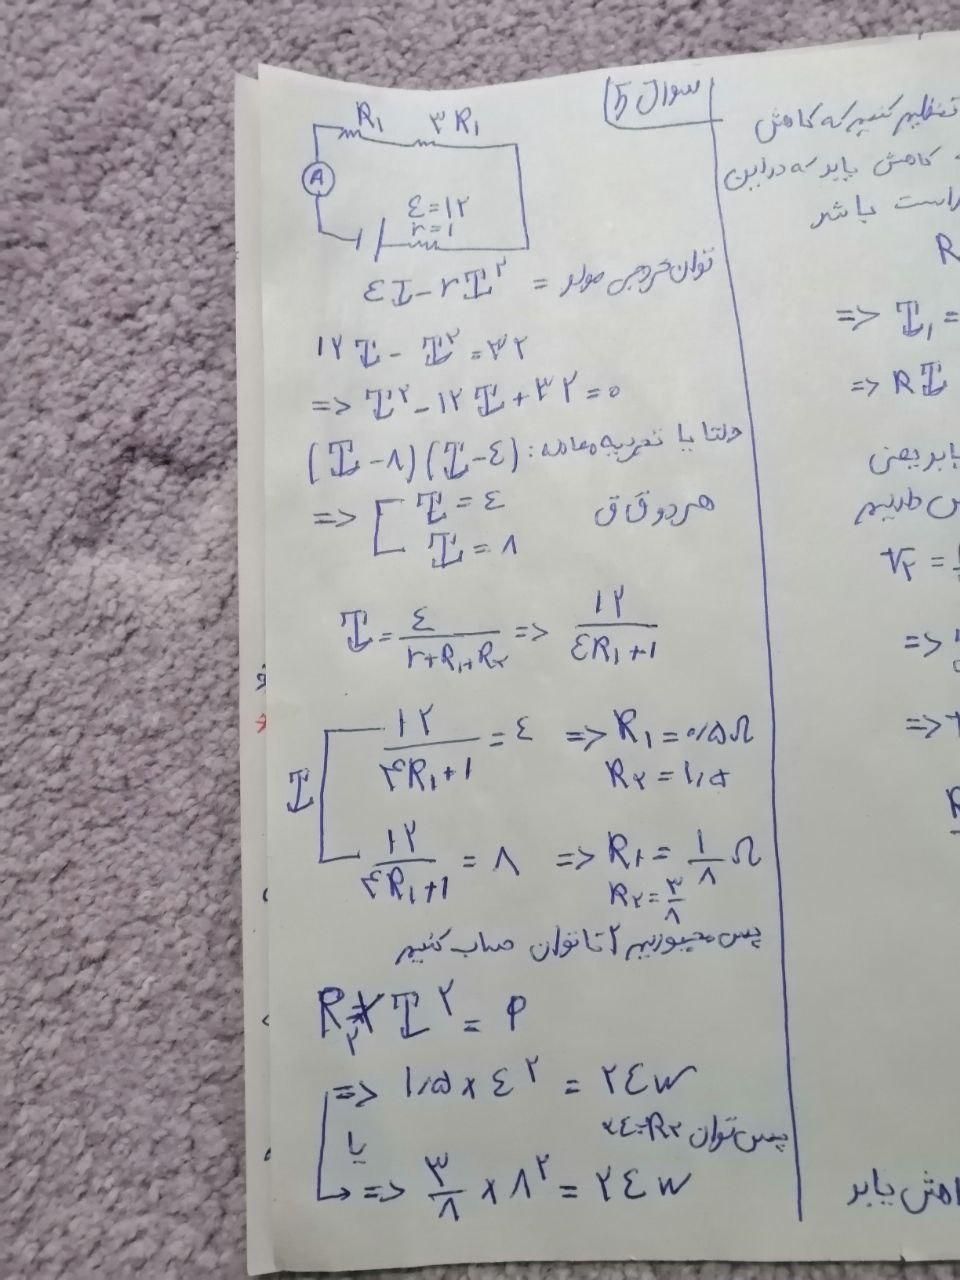 سوال ۵
R₁ ۳R₁
A
ε=۱۲
r=۱
توان خروجی مولد = εI-rI²
۱۲I - I² = ۳۲
=> I² - ۱۲I + ۳۲ = ۰
دلتا یا تجزیه معادله: (I-۸)(I-٤)
=> I = ٤
I = ۸
هر دو ق ق
I = ε/(r+R₁+R₂) => ۱۲/(٤R₁+۱)
I
۱۲/(٤R₁+۱) = ٤ => R₁ = ۰٫۵Ω
R₂ = ۱٫۵
۱۲/(٤R₁+۱) = ۸ => R₁ = ۱/۸ Ω
R₂ = ۳/۸
پس مجبوریم ۲ تا توان حساب کنیم
R₂ × I² = P
=> ۱٫۵ × ٤² = ۲٤ w
پس توان R₂=۲٤
یا
=> ۳/۸ × ۸² = ۲٤ w
تنظیم کنیم که کاهش
کاهش یابد که در این
راست باشد
R
=> I₁ =
=> RI
یابد یعنی
داریم
=>
=>
R
کاهش یابد